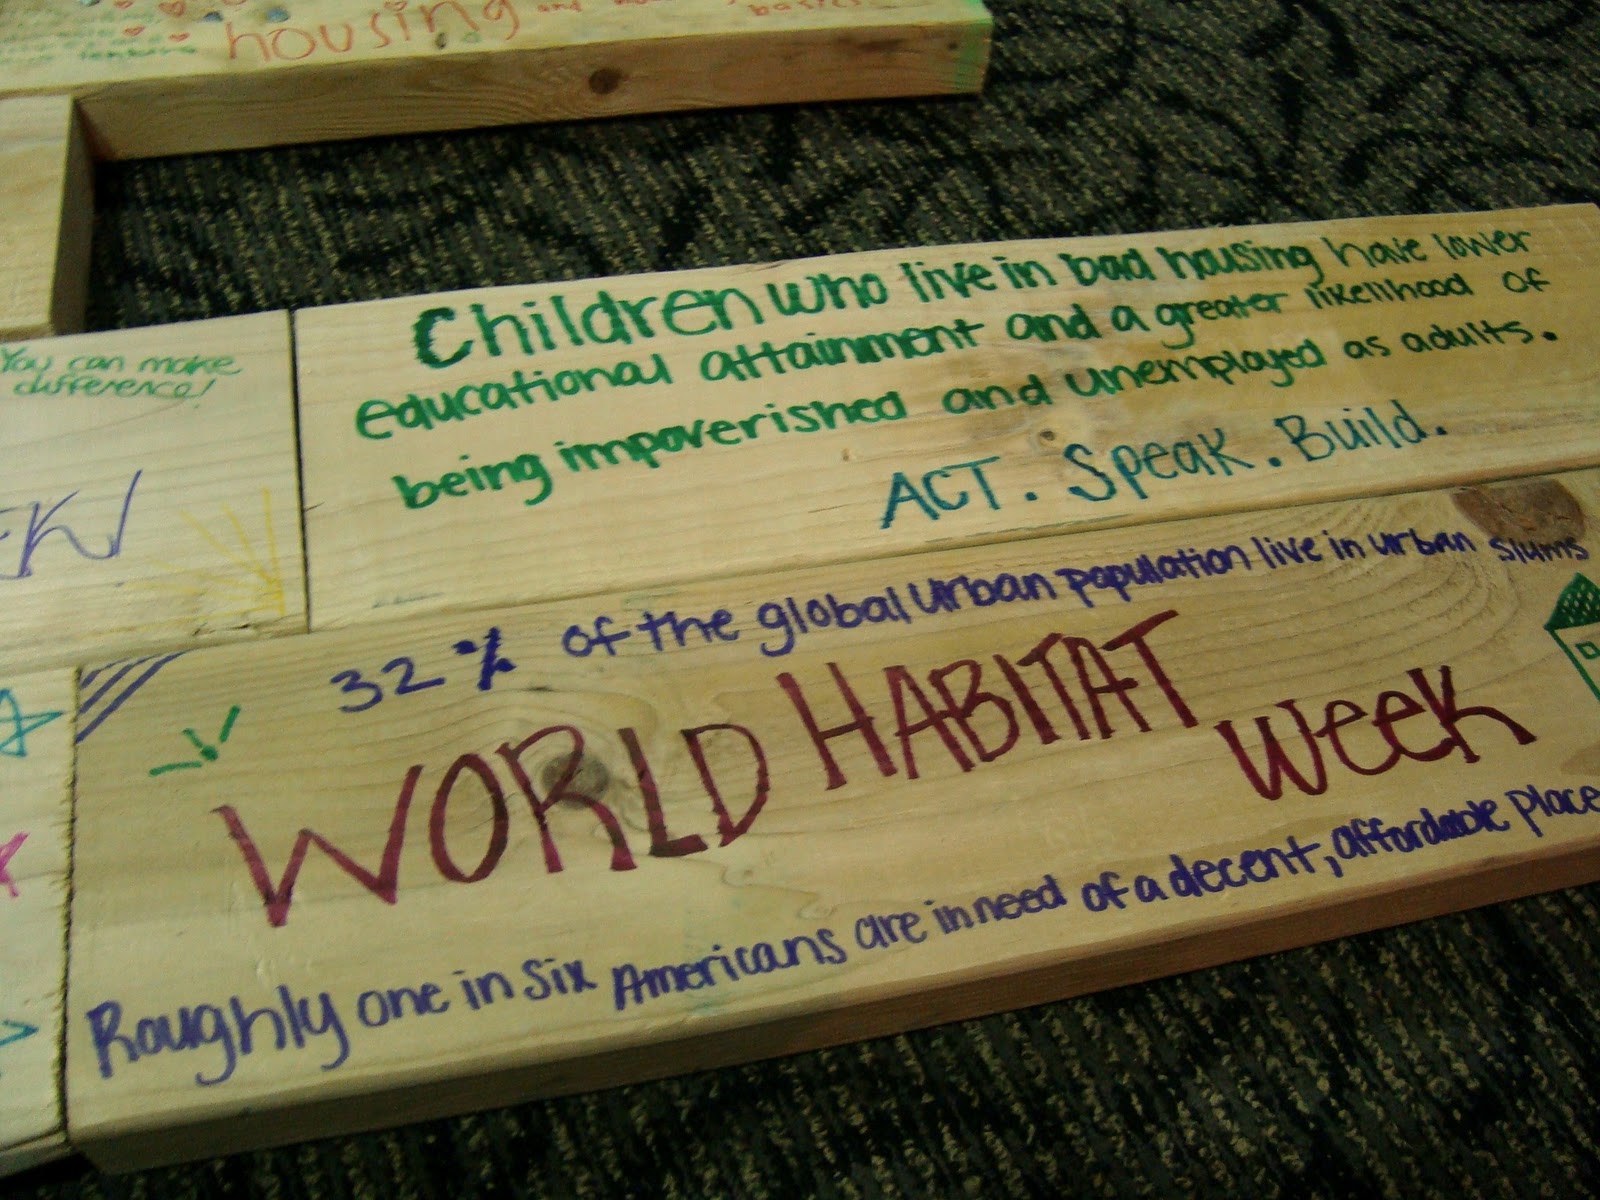 housing and
basics
You can make
difference!
Children who live in bad housing have lower
educational attainment and a greater likelihood of
being impoverished and unemployed as adults.
ACT. Speak. Build.
32% of the global urban population live in urban slums
WORLD HABITAT Week
Roughly one in six Americans are in need of a decent, affordable place